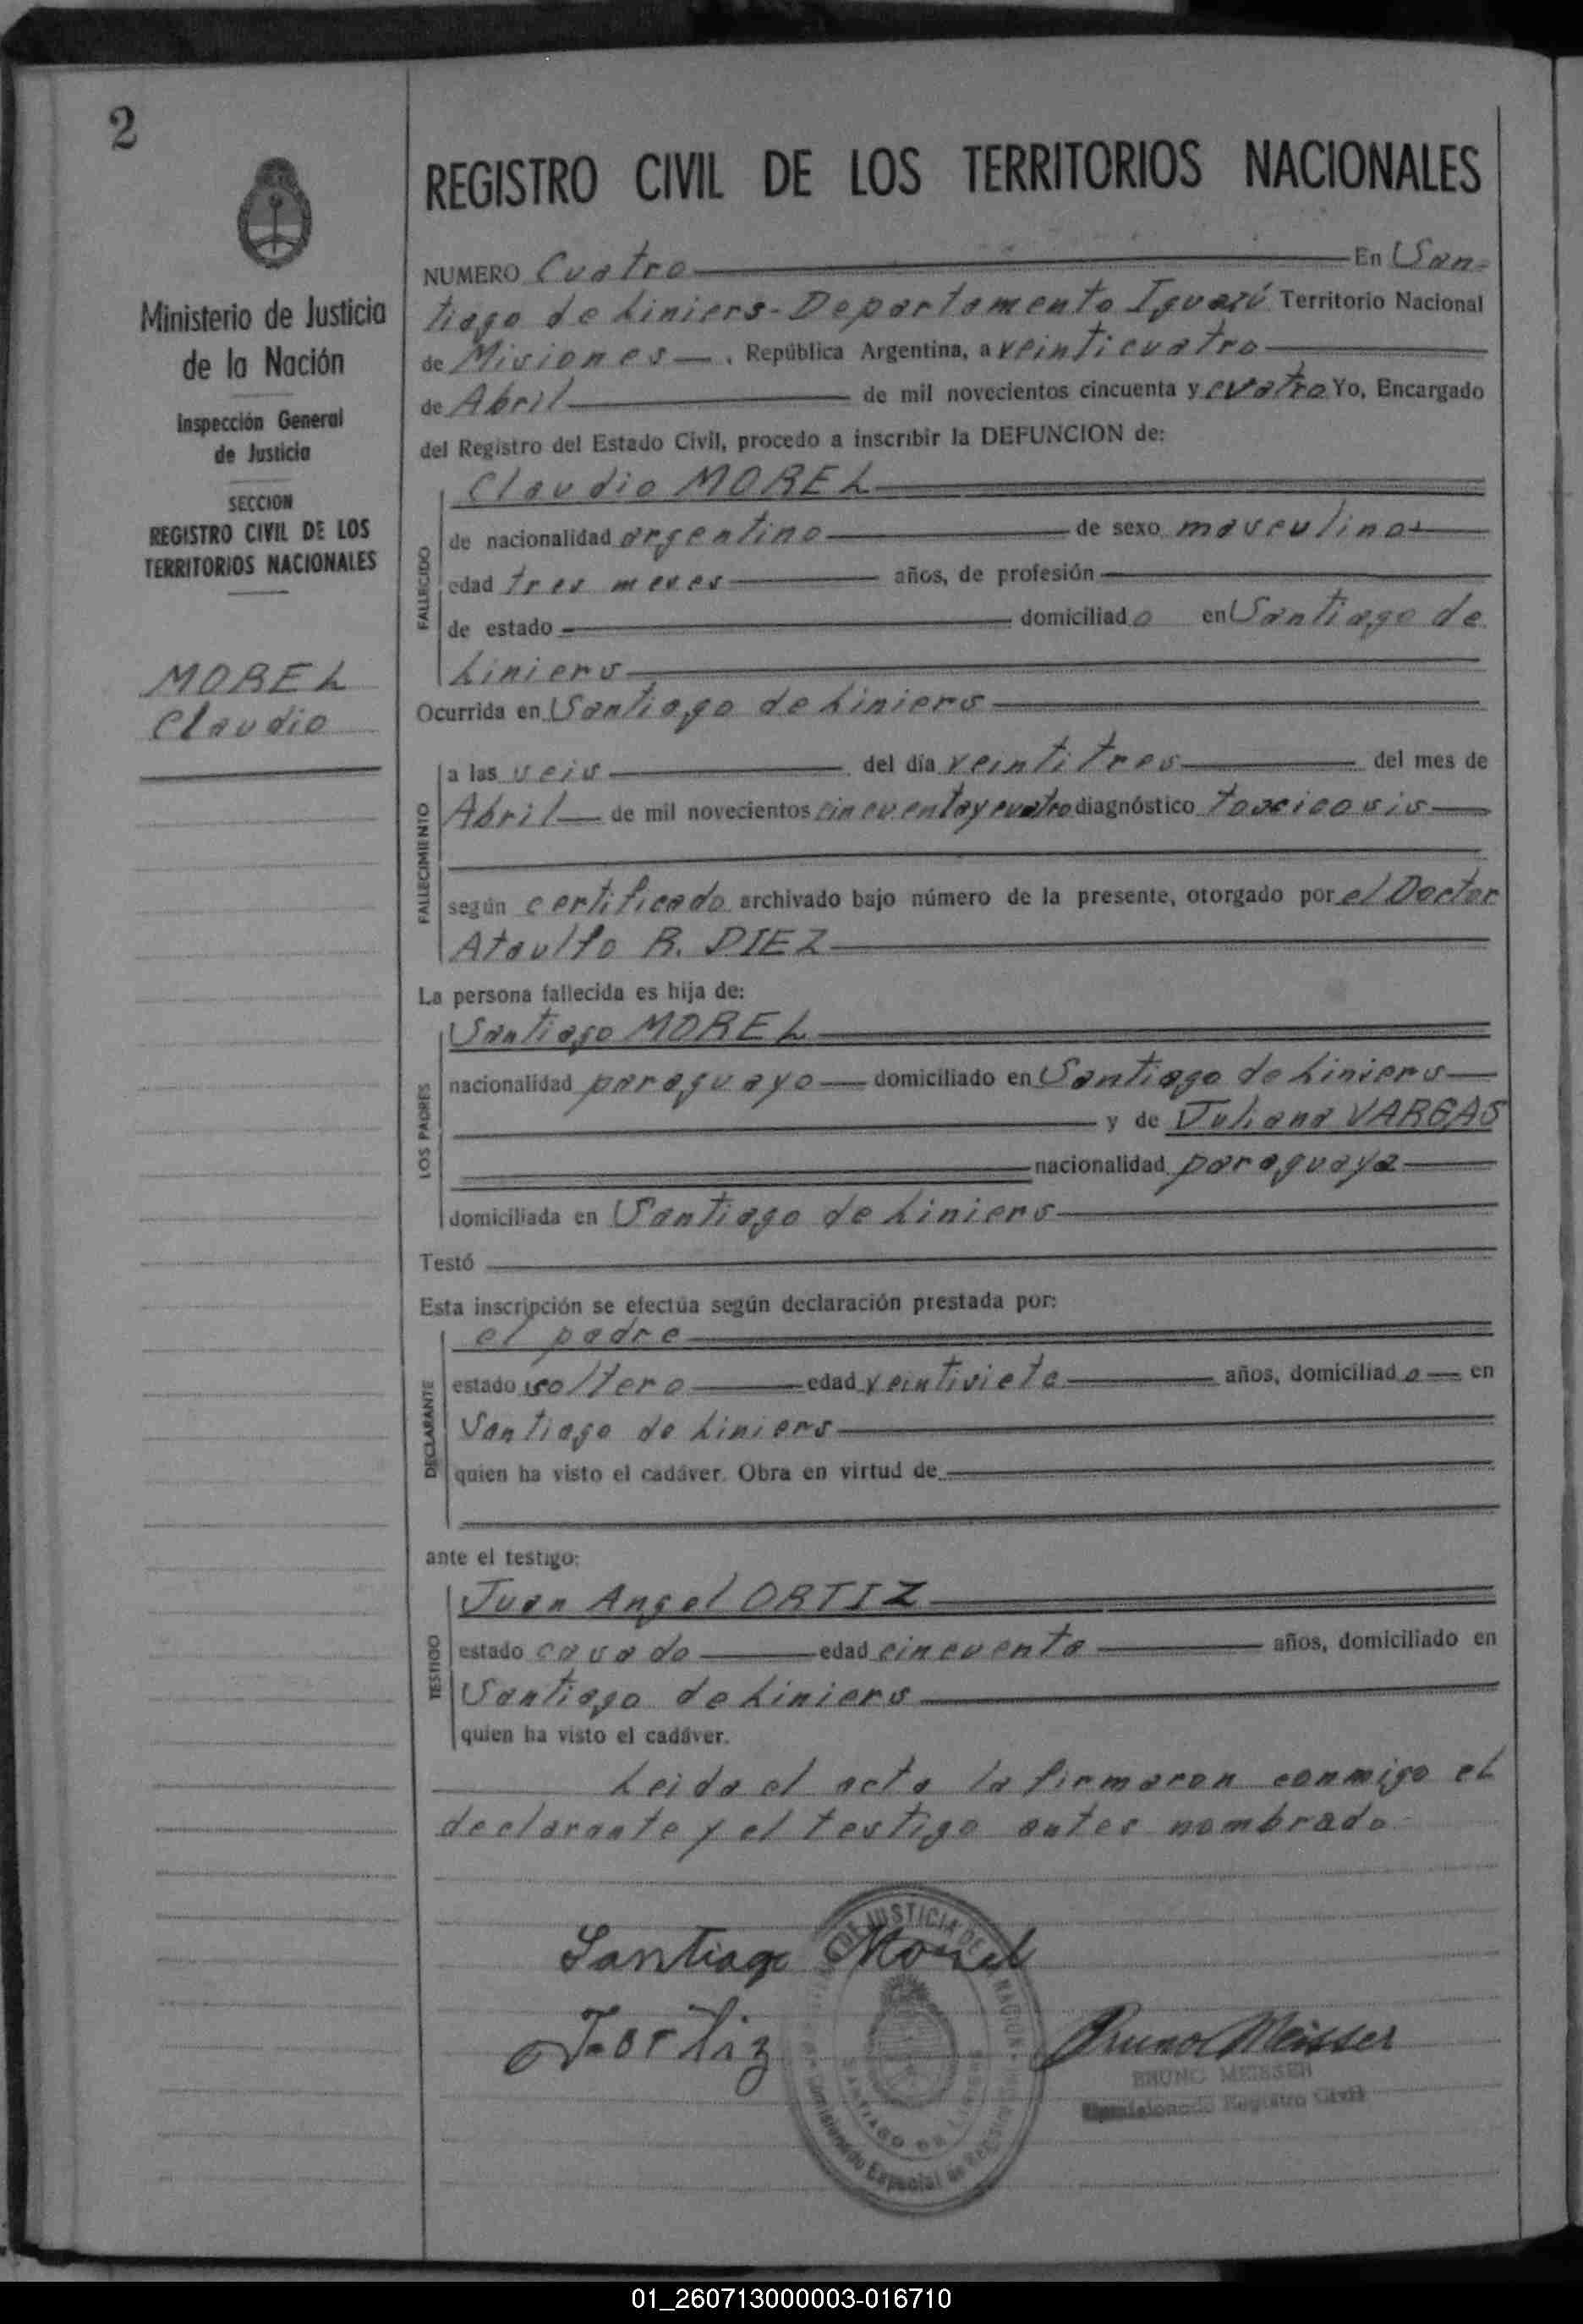 2
REGISTRO CIVIL DE LOS TERRITORIOS NACIONALES
Ministerio de Justicia
de la Nación
Inspección General
de Justicia
SECCION
REGISTRO CIVIL DE LOS
TERRITORIOS NACIONALES
MOREL
Claudio
NUMERO Cuatro En San-
tiago de Liniers - Departamento Iguazú Territorio Nacional
de Misiones, República Argentina, a veinticuatro
de Abril de mil novecientos cincuenta y cuatro Yo, Encargado
del Registro del Estado Civil, procedo a inscribir la DEFUNCION de:
Claudio MOREL
FALLECIDO
de nacionalidad argentino de sexo masculino
edad tres meses años, de profesión
de estado domiciliado en Santiago de
Liniers
Ocurrida en Santiago de Liniers
FALLECIMIENTO
a las seis del día veintitres del mes de
Abril de mil novecientos cincuenta y cuatro diagnóstico toxicosis
según certificado archivado bajo número de la presente, otorgado por el Doctor
Ataulfo R. DIEZ
La persona fallecida es hija de:
LOS PADRES
Santiago MOREL
nacionalidad paraguayo domiciliado en Santiago de Liniers
y de Juliana VARGAS
nacionalidad paraguaya
domiciliada en Santiago de Liniers
Testó
Esta inscripción se efectúa según declaración prestada por:
DECLARANTE
el padre
estado soltero edad veintisiete años, domiciliado en
Santiago de Liniers
quien ha visto el cadáver. Obra en virtud de
ante el testigo:
TESTIGO
Juan Angel ORTIZ
estado casado edad cincuenta años, domiciliado en
Santiago de Liniers
quien ha visto el cadáver.
Leida el acta la firmaron conmigo el
declarante y el testigo antes nombrado
Santiago Morel
J. ortiz
Bruno Meisser
BRUNO MEISSER
Comisionado Registro Civil
DE JUSTICIA DE NACION
SANTIAGO DE LINIERS
Comisionado Especial de Registro
01_260713000003-016710